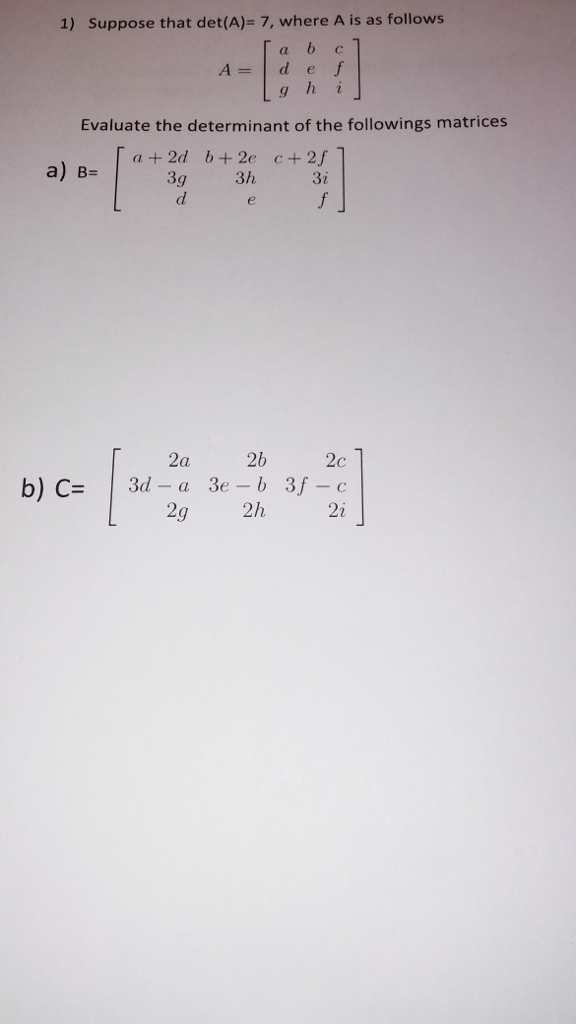 1) Suppose that det(A)= 7, where A is as follows
a b c
A = d e f
g h i
Evaluate the determinant of the followings matrices
a + 2d b + 2e c + 2f
a) B= 3g 3h 3i
d e f
2a 2b 2c
b) C= 3d − a 3e − b 3f − c
2g 2h 2i